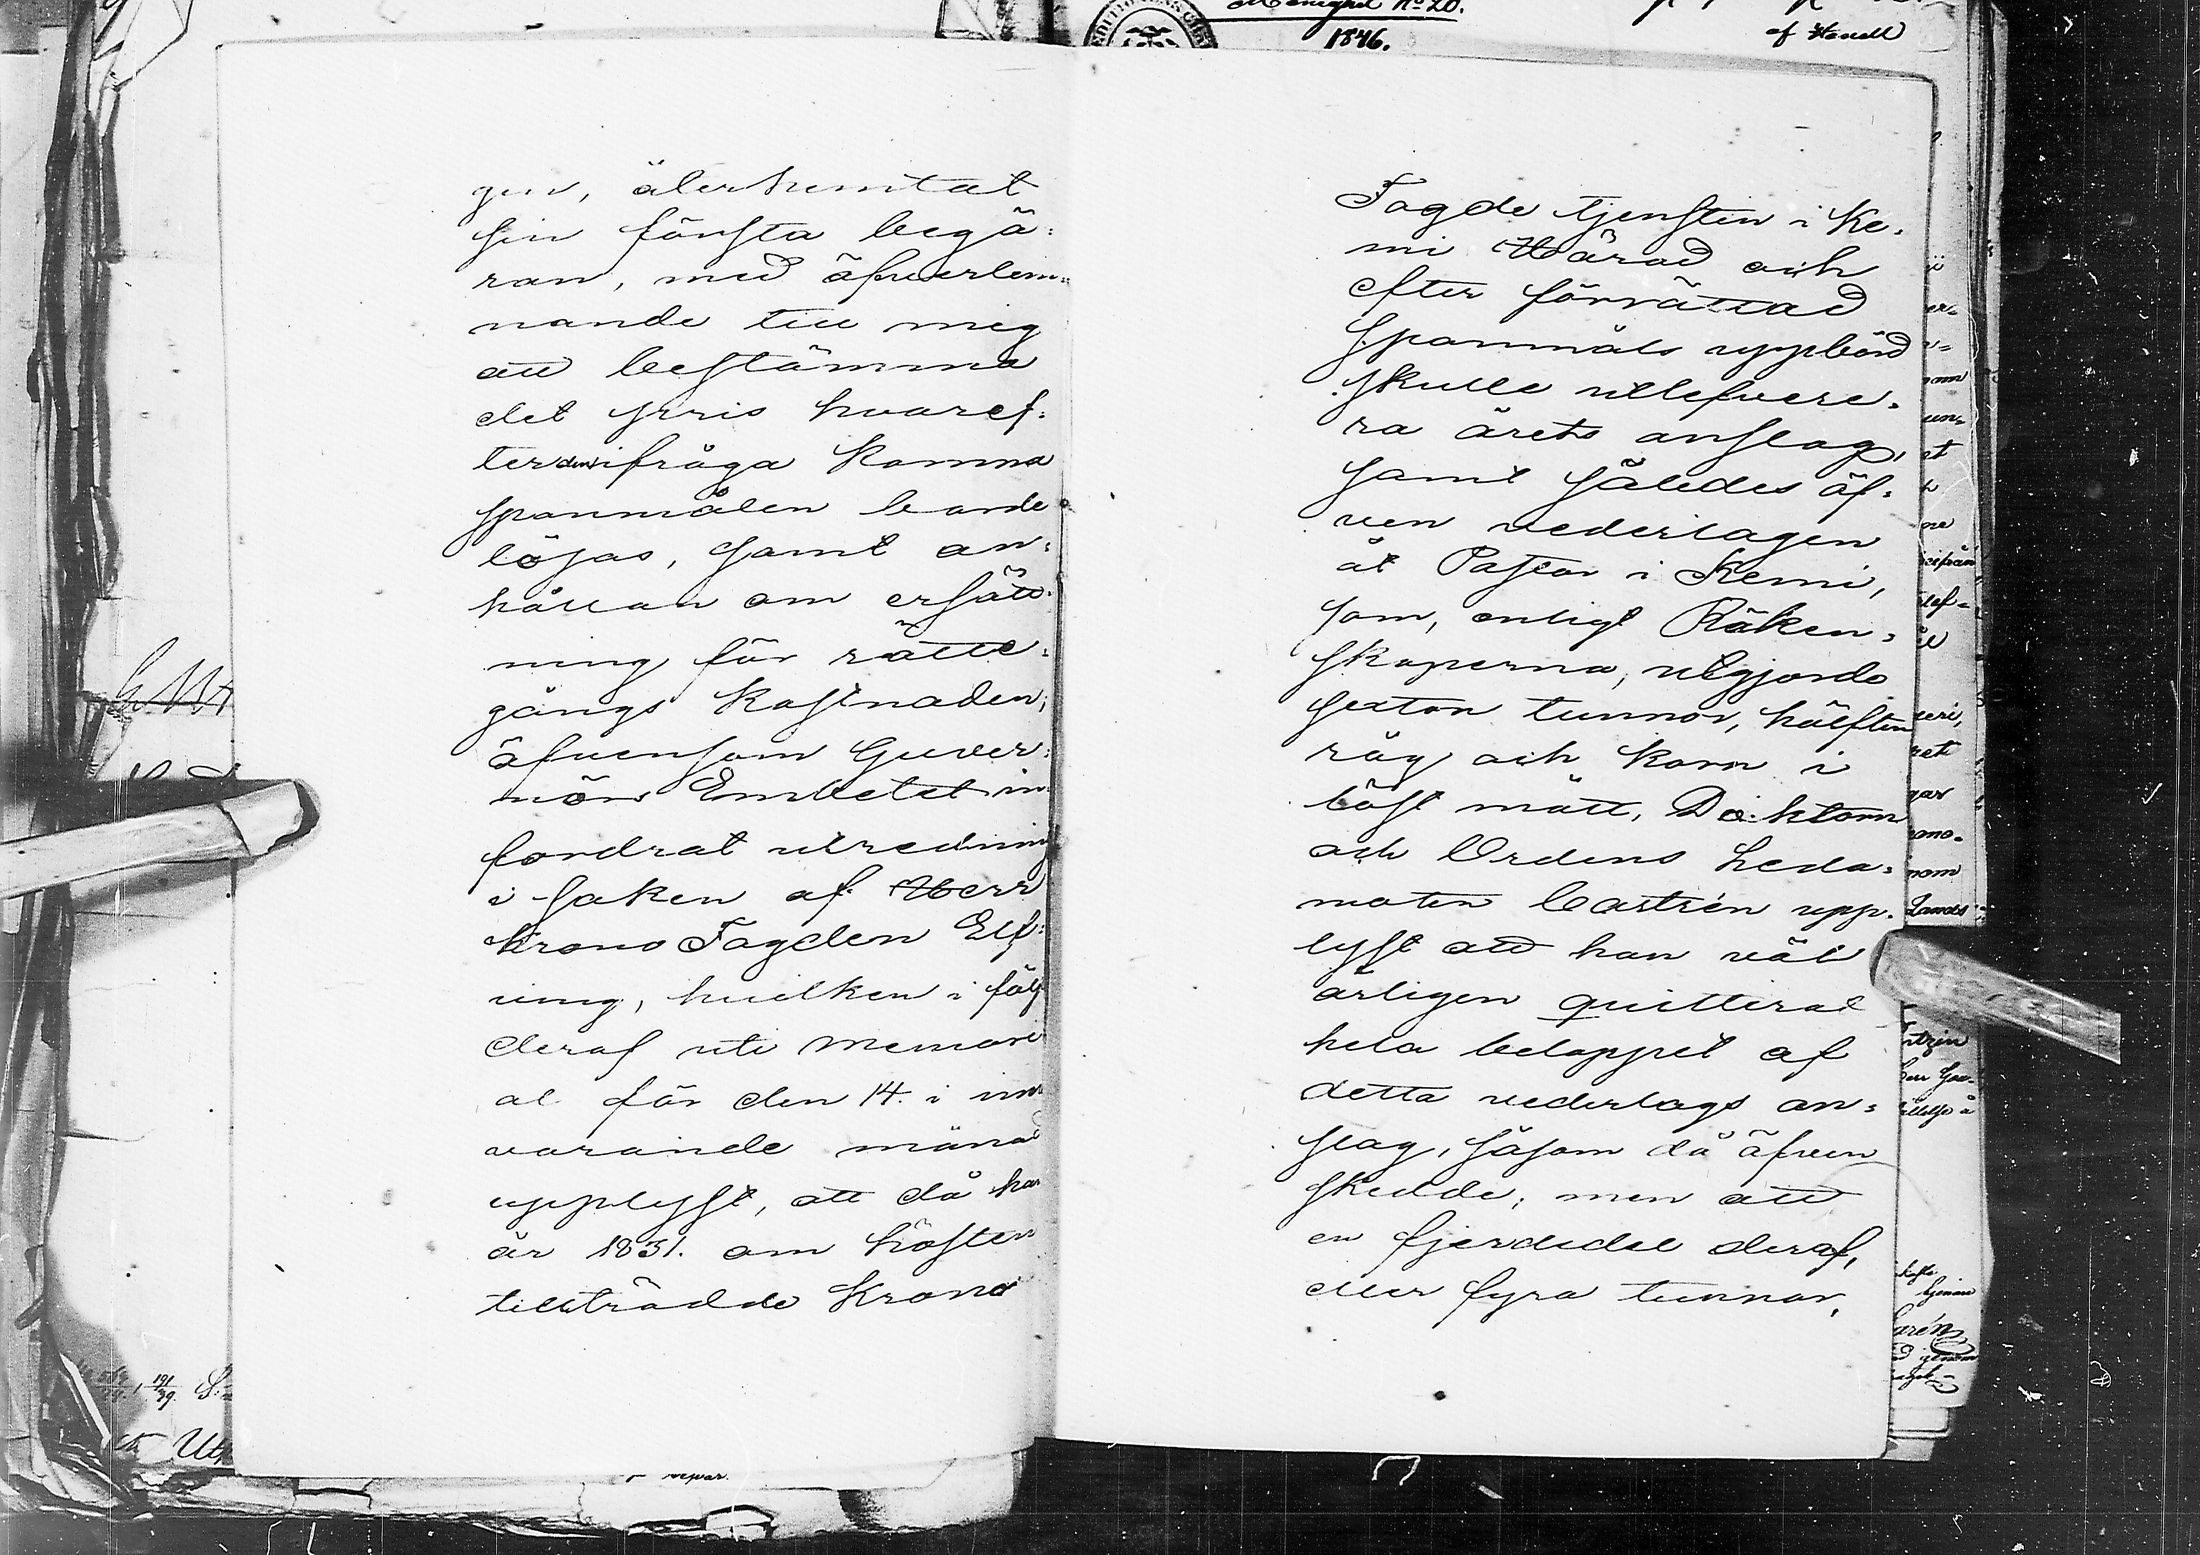 gen, återhemtat
sin första begä=
ran, med öfverlem=
nande till mig
att bestämma
det pris hvaref=
ter den ifråga komna
spanmålen borde
lösas, samt an=
hållan om ersätt=
ning för rätte=
gångs kostnaden;
äfvensom Guver=
nörs Embetet in=
fordrat utredning
i saken af Herr
Krono Fogden Elf=
ving, hvilken i följd
deraf uti Memori
al för den 14. i inne
varande månad
upplyst, att då han
år 1831. om hösten
tillträdde Krono
Fogde tjensten i Ke=
mi Härad och
efter förrättad
Spanmåls uppbörd
skulle utlefvere=
ra årets anslag,
samt således äf=
ven vederlagen
åt Pastor i Kemi,
som, enligt Räken=
skaperna, utgjorde
sexton tunnor, hälften
råg och korn i
löst mått, Doktorn
och Ordens Leda=
moten Castrén upp=
lyst att han väl
årligen quitterat
hela beloppet af
detta vederlags an=
slag, såsom då äfven
skedde; men att
en fjerdedel deraf,
eller fyra tunnor,
No 20.
1846.